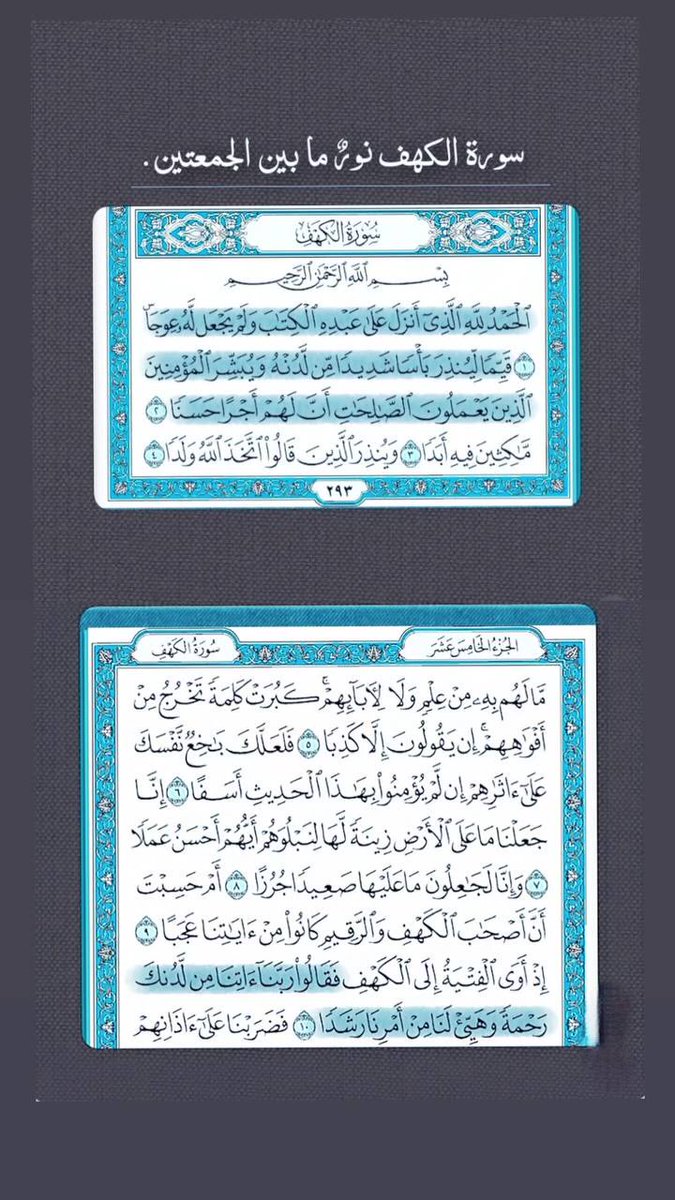 سورة الكهف نورٌ ما بين الجمعتين.
سُورَةُ الكَهۡفِ
بِسۡمِ ٱللَّهِ ٱلرَّحۡمَٰنِ ٱلرَّحِيمِ
ٱلۡحَمۡدُ لِلَّهِ ٱلَّذِيٓ أَنزَلَ عَلَىٰ عَبۡدِهِ ٱلۡكِتَٰبَ وَلَمۡ يَجۡعَل لَّهُۥ عِوَجَاۜ
١ قَيِّمٗا لِّيُنذِرَ بَأۡسٗا شَدِيدٗا مِّن لَّدُنۡهُ وَيُبَشِّرَ ٱلۡمُؤۡمِنِينَ
ٱلَّذِينَ يَعۡمَلُونَ ٱلصَّٰلِحَٰتِ أَنَّ لَهُمۡ أَجۡرًا حَسَنٗا ٢
مَّٰكِثِينَ فِيهِ أَبَدٗا ٣ وَيُنذِرَ ٱلَّذِينَ قَالُواْ ٱتَّخَذَ ٱللَّهُ وَلَدٗا ٤
٢٩٣
الجُزۡءُ الخَامِسَ عَشَرَ سُورَةُ الكَهۡفِ
مَّا لَهُم بِهِۦ مِنۡ عِلۡمٖ وَلَا لِأٓبَآئِهِمۡۚ كَبُرَتۡ كَلِمَةٗ تَخۡرُجُ مِنۡ
أَفۡوَٰهِهِمۡۚ إِن يَقُولُونَ إِلَّا كَذِبٗا ٥ فَلَعَلَّكَ بَٰخِعٞ نَّفۡسَكَ
عَلَىٰٓ ءَاثَٰرِهِمۡ إِن لَّمۡ يُؤۡمِنُواْ بِهَٰذَا ٱلۡحَدِيثِ أَسَفًا ٦ إِنَّا
جَعَلۡنَا مَا عَلَى ٱلۡأَرۡضِ زِينَةٗ لَّهَا لِنَبۡلُوَهُمۡ أَيُّهُمۡ أَحۡسَنُ عَمَلٗا
٧ وَإِنَّا لَجَٰعِلُونَ مَا عَلَيۡهَا صَعِيدٗا جُرُزًا ٨ أَمۡ حَسِبۡتَ
أَنَّ أَصۡحَٰبَ ٱلۡكَهۡفِ وَٱلرَّقِيمِ كَانُواْ مِنۡ ءَايَٰتِنَا عَجَبًا ٩
إِذۡ أَوَى ٱلۡفِتۡيَةُ إِلَى ٱلۡكَهۡفِ فَقَالُواْ رَبَّنَآ ءَاتِنَا مِن لَّدُنكَ
رَحۡمَةٗ وَهَيِّئۡ لَنَا مِنۡ أَمۡرِنَا رَشَدٗا ١٠ فَضَرَبۡنَا عَلَىٰٓ ءَاذَانِهِمۡ